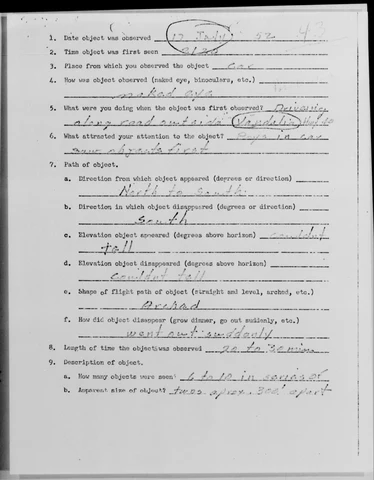 1. Date object was observed 17 July 52
2. Time object was first seen
3. Place from which you observed the object car
4. How was object observed (naked eye, binoculars, etc.)
naked eye
5. What were you doing when the object was first observed? Driving
along road outside Vandalia
6. What attracted your attention to the object? Boys in car
saw objects first
7. Path of object.
a. Direction from which object appeared (degrees or direction)
North to south
b. Direction in which object disappeared (degrees or direction)
South
c. Elevation object appeared (degrees above horizon) couldnt
tell
d. Elevation object disappeared (degrees above horizon)
couldnt tell
e. Shape of flight path of object (straight and level, arched, etc.)
Arched
f. How did object disappear (grow dimmer, go out suddenly, etc.)
went out suddenly
8. Length of time the object was observed 20 to 30 mins
9. Description of object.
a. How many objects were seen 6 to 10 in series of
b. Apparent size of object? twos aprox. 300' apart